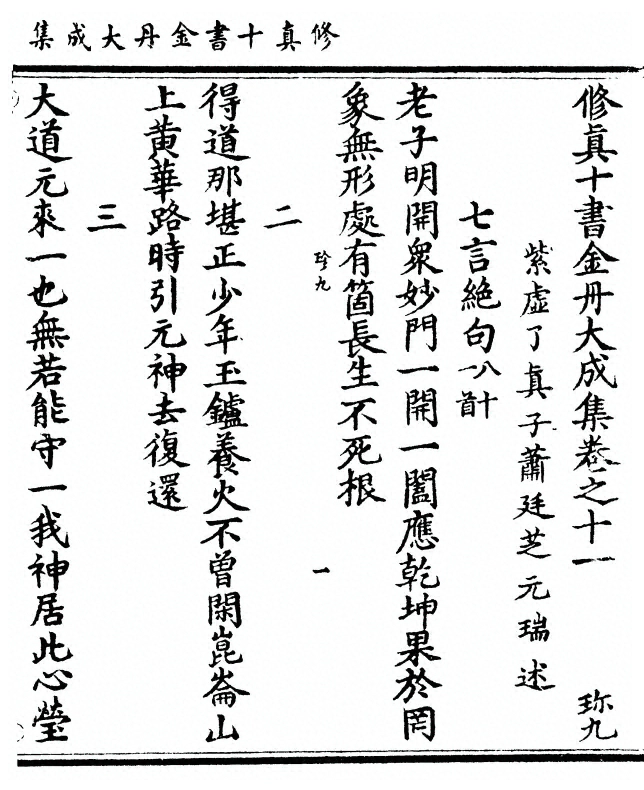 修真十書金丹大成集
修眞十書金丹大成集卷之十一 珎九
紫虛了眞子蕭廷芝元瑞述
七言絶句八十一首
老子明開衆妙門一開一闔應乾坤果於罔
象無形處有箇長生不死根
珎九 一
二
得道那堪正少年玉鑪養火不曾閑崑崙山
上黄華路時引元神去復還
三
大道元來一也無若能守一我神居此心瑩